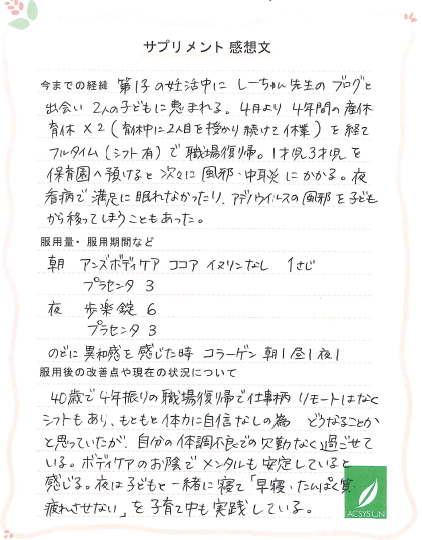 サプリメント 感想文
今までの経緯 第1子の妊活中に しーちゃん先生の ブログと
出会い 2人の子どもに恵まれる。4月より 4年間の産休
育休×2 (育休中に2人目を授かり続けて休業) を経て
フルタイム (シフト有) で 職場復帰。1才児3才児を
保育園へ預けると 次々に 風邪・中耳炎 にかかる。夜
看病で 満足に 眠れなかったり、アデノウイルスの風邪を子ども
から移ってしまうこともあった。
服用量・服用期間など
朝 アンズボディケア ココア イヌリンなし 1さじ
プラセンタ 3
夜 歩楽錠 6
プラセンタ 3
のどに異和感を感じた時 コラーゲン 朝1昼1夜1
服用後の改善点や現在の状況について
40歳で4年振りの職場復帰で仕事柄 リモートはなく
シフトもあり、もともと体力に自信なしの為 どうなることか
と思っていたが、自分の体調不良での欠勤なく過ごせて
いる。ボディケアのお陰で メンタルも安定していると
感じる。夜は子どもと一緒に寝て「早寝・たんぱく質・
疲れさせない」を 子育て中も実践している。
ACSYSUN